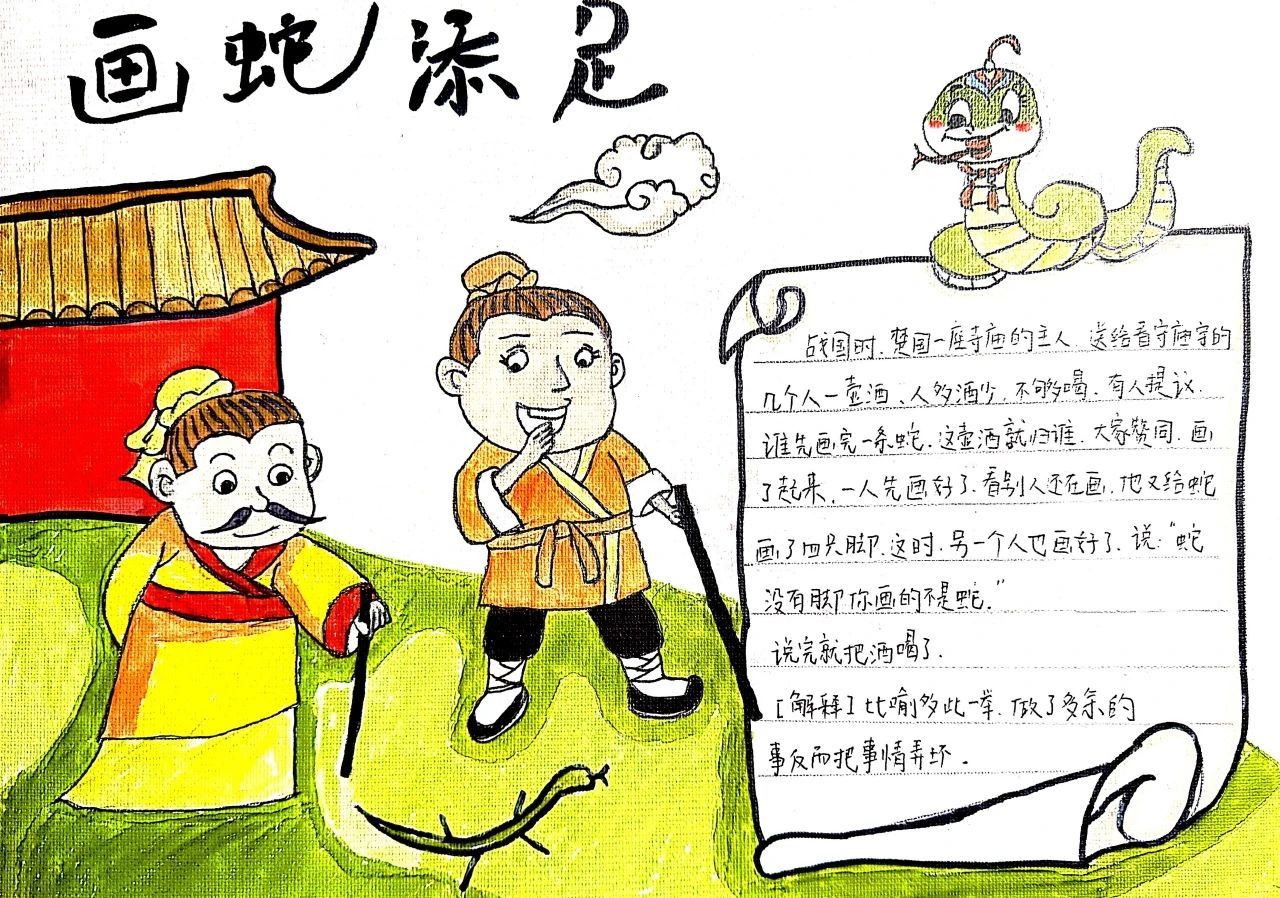 画蛇添足
战国时,楚国一座寺庙的主人 送给看守庙宇的
几个人一壶酒、人多酒少,不够喝,有人提议,
谁先画完一条蛇,这壶酒就归谁,大家赞同,画
了起来,一人先画好了,看别人还在画,他又给蛇
画了四只脚,这时,另一个人也画好了,说:“蛇
没有脚你画的不是蛇.”
说完就把酒喝了.
[解释] 比喻多此一举,做了多余的
事反而把事情弄坏.